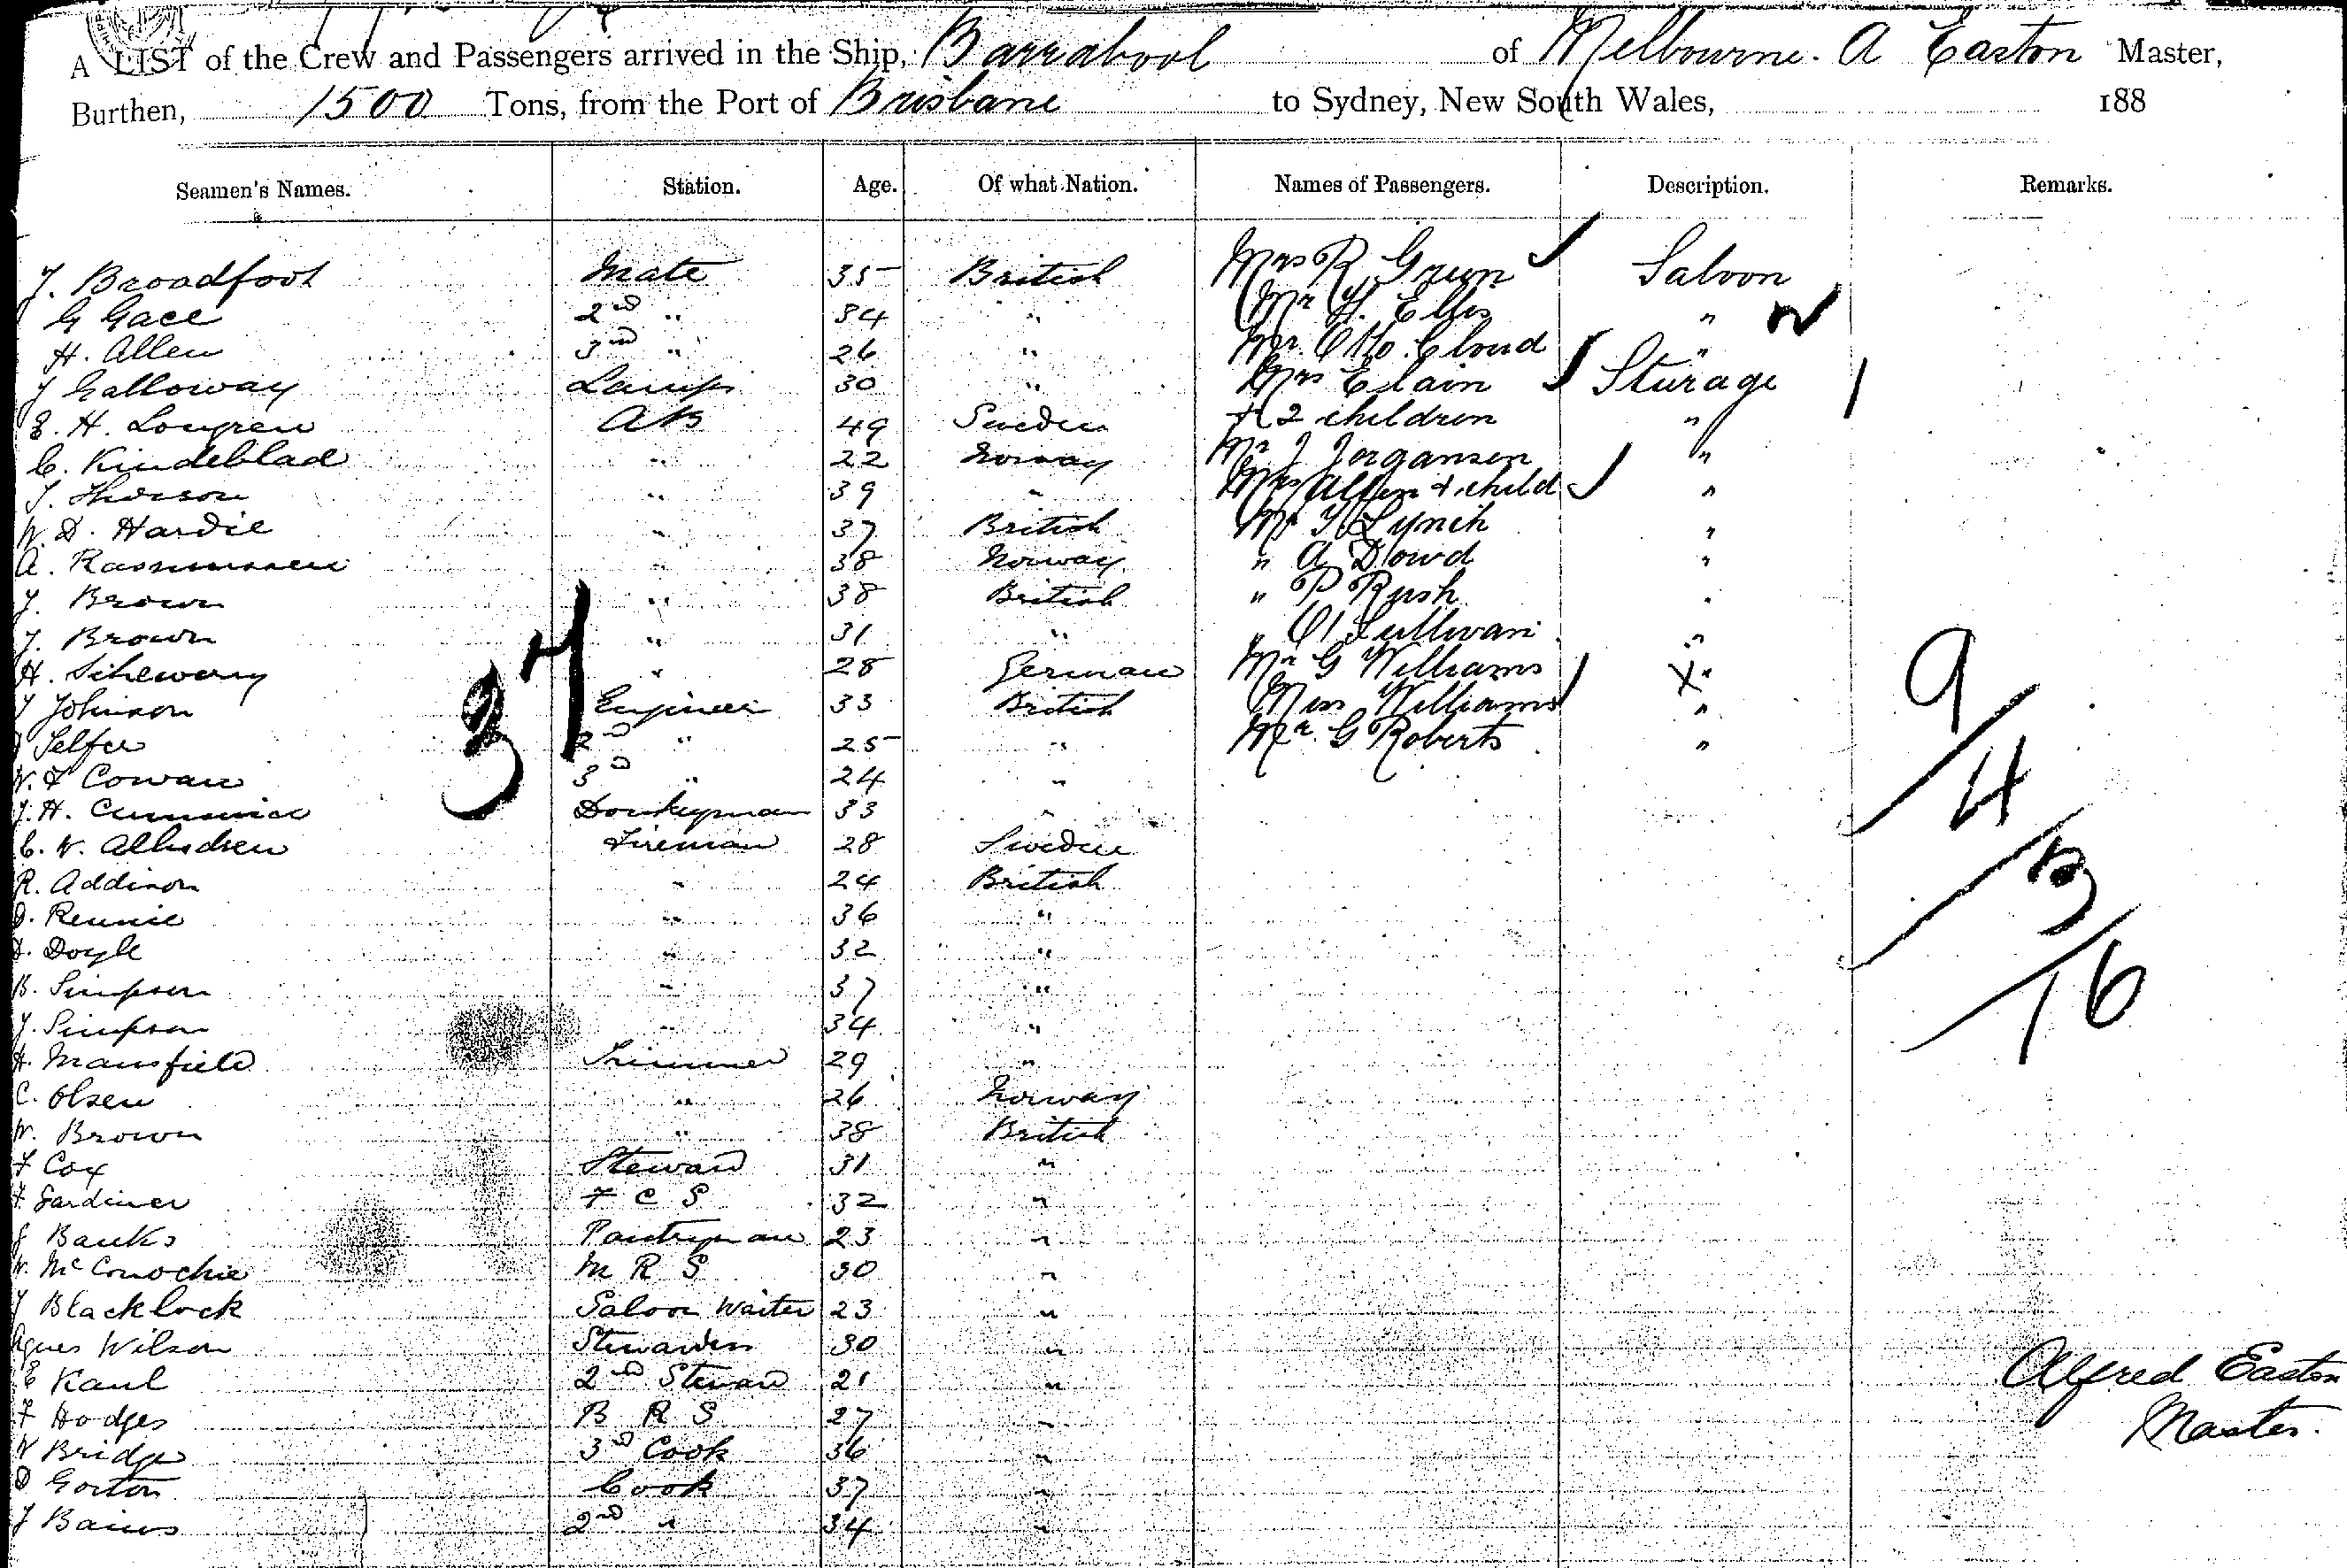 A LIST of the Crew and Passengers arrived in the Ship, Barrabool of Melbourne. A Easton Master,
Burthen, 1500 Tons, from the Port of Brisbane to Sydney, New South Wales, 188
Seamen's Names. Station. Age. Of what Nation. Names of Passengers. Description. Remarks.
J. Broadfoot Mate 35 British Mrs R Green Saloon
G Gace 2nd " 34 " Mr H. Ellis "
H. Allen 3rd " 26 " Mr Cloud "
J Galloway Lamps 30 " Mrs Elain Sturage
H. Longren AB 49 Sweden + 2 children "
C. Kindeblad " 22 Norway Mr J Jorgansen "
J. Thorson " 39 " Mrs Allen + child "
W. D. Hardie " 37 British Mr Lynch "
A. Rasmussen " 38 Norway " A Dowd "
J. Brown " 38 British " P Rush "
J. Brown " 31 " " Sullivan "
H. " 28 German Mr G Williams X "
J Johnson Engineer 33 British Miss Williams "
Selfee 2nd " 25 " Mr. G Roberts "
34
W. F Cowan 3rd " 24 "
J. H. Donkeyman 33 "
C. W. Fireman 28 Sweden
R. Addison " 24 British
D. Rennie " 36 "
Doyle " 32 "
B. Simpson " 37 "
J. Simpson " 34 "
H. Mansfield Trimmer 29 "
C. Olsen " 26 Norway
W. Brown " 38 British
F Cox Steward 31 "
F. Gardiner F C S 32 "
J Banks Pantryman 23 "
W. McConochie M R S 30 "
J Blacklock Saloon Waiter 23 "
Agnes Wilson Stewardess 30 "
E Kaul 2nd Steward 21 "
F Hodges B R S 27 "
W Bridge 3rd Cook 36 "
D Gorton Cook 37 "
J Bains 2nd " 34 "
9
4
3
16
Alfred Easton
Master.